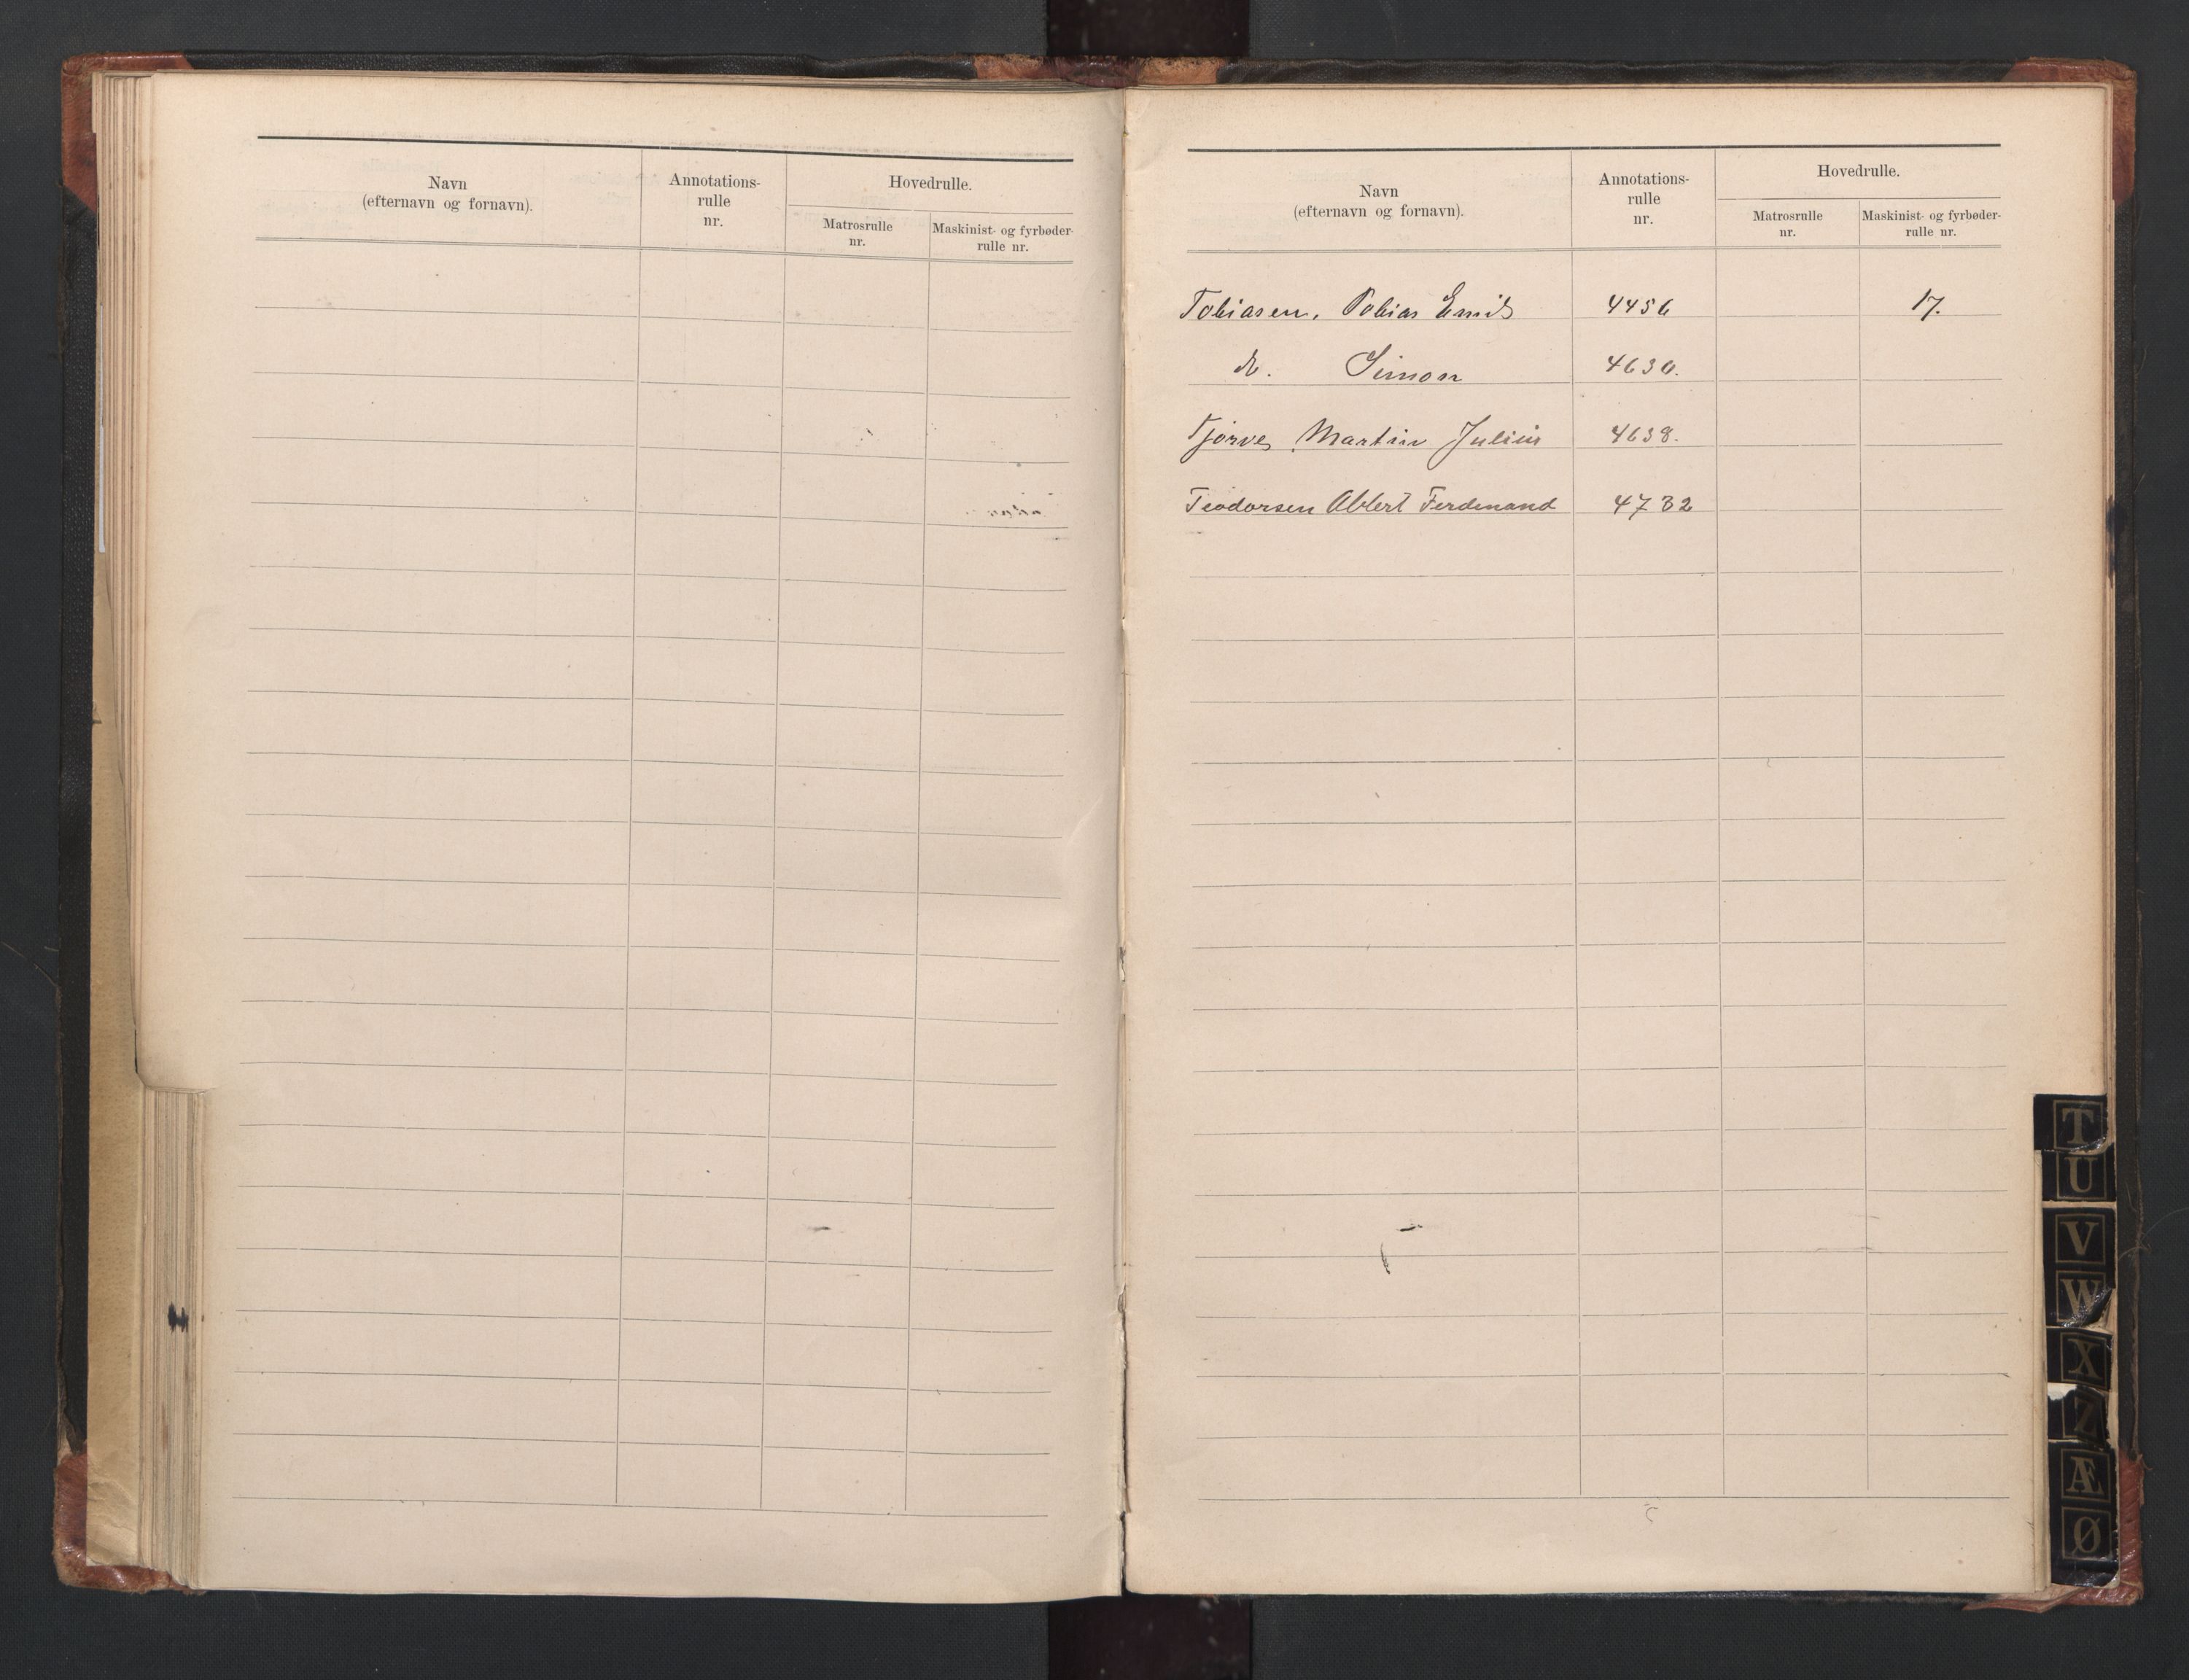 Navn
(efternavn og fornavn).
Annotations-
rulle
nr.
Hovedrulle.
Matrosrulle
nr.
Maskinist- og fyrbøder-
rulle nr.
Navn
(efternavn og fornavn).
Annotations-
rulle
nr.
Hovedrulle.
Matrosrulle
nr.
Maskinist- og fyrbøder-
rulle nr.
Tobiasen, Tobias Emil 4456 17.
do. Simon 4630.
Tjørve, Martin Julius 4638.
Teodorsen Albert Ferdinand 4732
T
U
V
W
X
Z
Æ
Ø